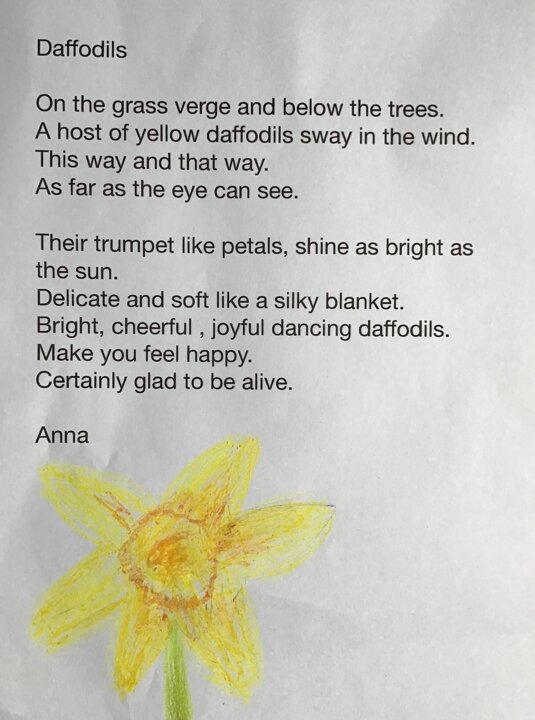 Daffodils
On the grass verge and below the trees.
A host of yellow daffodils sway in the wind.
This way and that way.
As far as the eye can see.
Their trumpet like petals, shine as bright as
the sun.
Delicate and soft like a silky blanket.
Bright, cheerful , joyful dancing daffodils.
Make you feel happy.
Certainly glad to be alive.
Anna